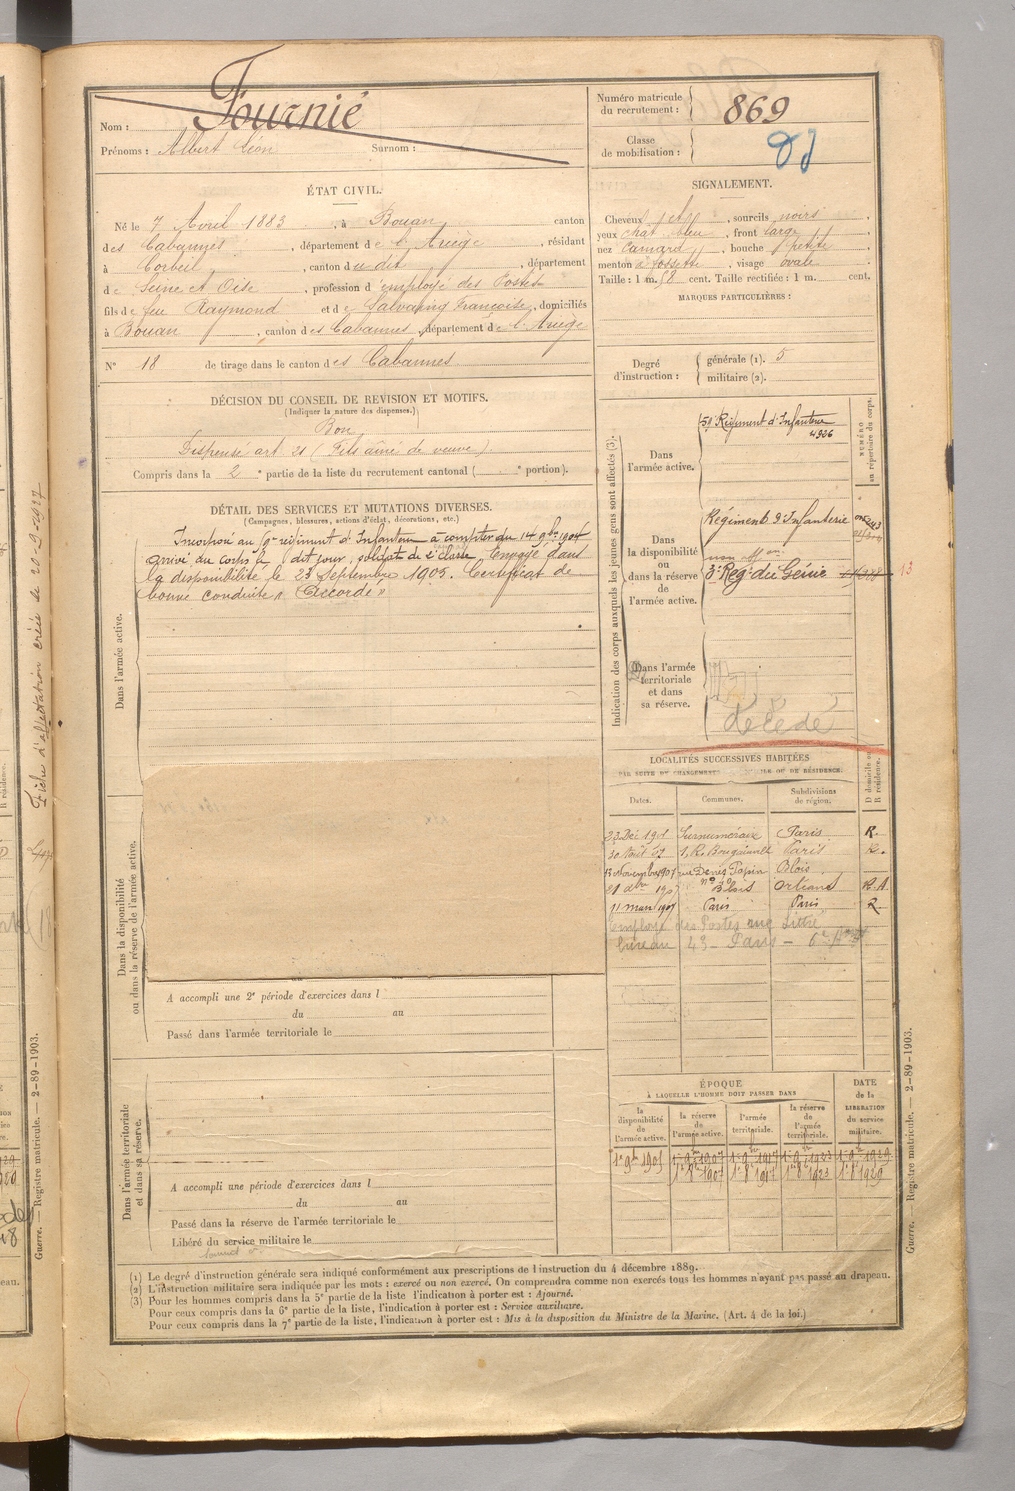 Nom : Fournié
Prénoms : Albert Léon Surnom :
Numéro matricule du recrutement : 869
Classe de mobilisation :
ÉTAT CIVIL.
Né le 7 Avril 1883, à Bouan, canton
des Cabannes, département de l'Ariège, résidant
à Corbeil, canton du dit, département
de Seine et Oise, profession d'employé des Postes
fils de feu Raymond et de Salvaing Françoise, domiciliés
à Bouan, canton des Cabannes, département de l'Ariège
N° 18 de tirage dans le canton des Cabannes
SIGNALEMENT.
Cheveux, sourcils noirs,
yeux chat. bleu, front large,
nez Camard, bouche petite,
menton à fossette, visage ovale.
Taille : 1 m. 58 cent. Taille rectifiée : 1 m. cent.
MARQUES PARTICULIÈRES :
Degré d'instruction : générale (1). 5
militaire (2).
DÉCISION DU CONSEIL DE REVISION ET MOTIFS.
(Indiquer la nature des dispenses.)
Bon
Dispensé art. 21 (Fils aîné de veuve)
Compris dans la 2e partie de la liste du recrutement cantonal ( e portion).
DÉTAIL DES SERVICES ET MUTATIONS DIVERSES.
(Campagnes, blessures, actions d'éclat, décorations, etc.)
Dans l'armée active.
Incorporé au régiment d'Infanterie à compter du 14 9bre 1904
arrivé au corps le dit jour, soldat de 2e classe. Envoyé dans
la disponibilité le 23 Septembre 1905. Certificat de
bonne conduite « Accordé »
Indication des corps auxquels les jeunes gens sont affectés (3).
NUMÉRO au répertoire du corps.
Dans l'armée active.
Régiment d'Infanterie
4926
Dans la disponibilité ou dans la réserve de l'armée active.
Régiment d'Infanterie
3e Rég. du Génie
13
Dans l'armée territoriale et dans sa réserve.
décédé
LOCALITÉS SUCCESSIVES HABITÉES
PAR SUITE DE CHANGEMENTS DE DOMICILE OU DE RÉSIDENCE.
Dates. Communes. Subdivisions de région. D domicile ou R résidence.
23 Déc 1905 Surnuméraire Paris R.
30 Août 07 1, R. Bougainville Paris R.
13 Novembre 1907 rue Denis Papin Blois
21 dbre 190 Blois Orléans R.A.
11 mars 1909 Paris Paris R
Employé des Postes rue Littré
bureau 43 – Paris – 6e
Dans la disponibilité ou dans la réserve de l'armée active.
A accompli une 2e période d'exercices dans l
du au
Passé dans l'armée territoriale le
Dans l'armée territoriale et dans sa réserve.
A accompli une période d'exercices dans l
du au
Passé dans la réserve de l'armée territoriale le
Libéré du service militaire le
ÉPOQUE
À LAQUELLE L'HOMME DOIT PASSER DANS
la disponibilité de l'armée active. la réserve de l'armée active. l'armée territoriale. la réserve de l'armée territoriale. DATE de la LIBÉRATION du service militaire.
1er 9bre 1905 1er 9bre 1907 1er 9bre 1917 1er 9bre 1923 1er 9bre 1929
1er 8bre 1907 1er 8bre 1917 1er 8bre 1923 1er 8bre 1929
(1) Le degré d'instruction générale sera indiqué conformément aux prescriptions de l'instruction du 4 décembre 1889.
(2) L'instruction militaire sera indiquée par les mots : exercé ou non exercé. On comprendra comme non exercés tous les hommes n'ayant pas passé au drapeau.
(3) Pour les hommes compris dans la 5e partie de la liste l'indication à porter est : Ajourné.
Pour ceux compris dans la 6e partie de la liste, l'indication à porter est : Service auxiliaire.
Pour ceux compris dans la 7e partie de la liste, l'indication à porter est : Mis à la disposition du Ministre de la Marine. (Art. 4 de la loi.)
Guerre. — Registre matricule. — 2-89-1903.
Guerre. — Registre matricule. — 2-89-1903.
Fiche d'affectation créée le 20-9-1927